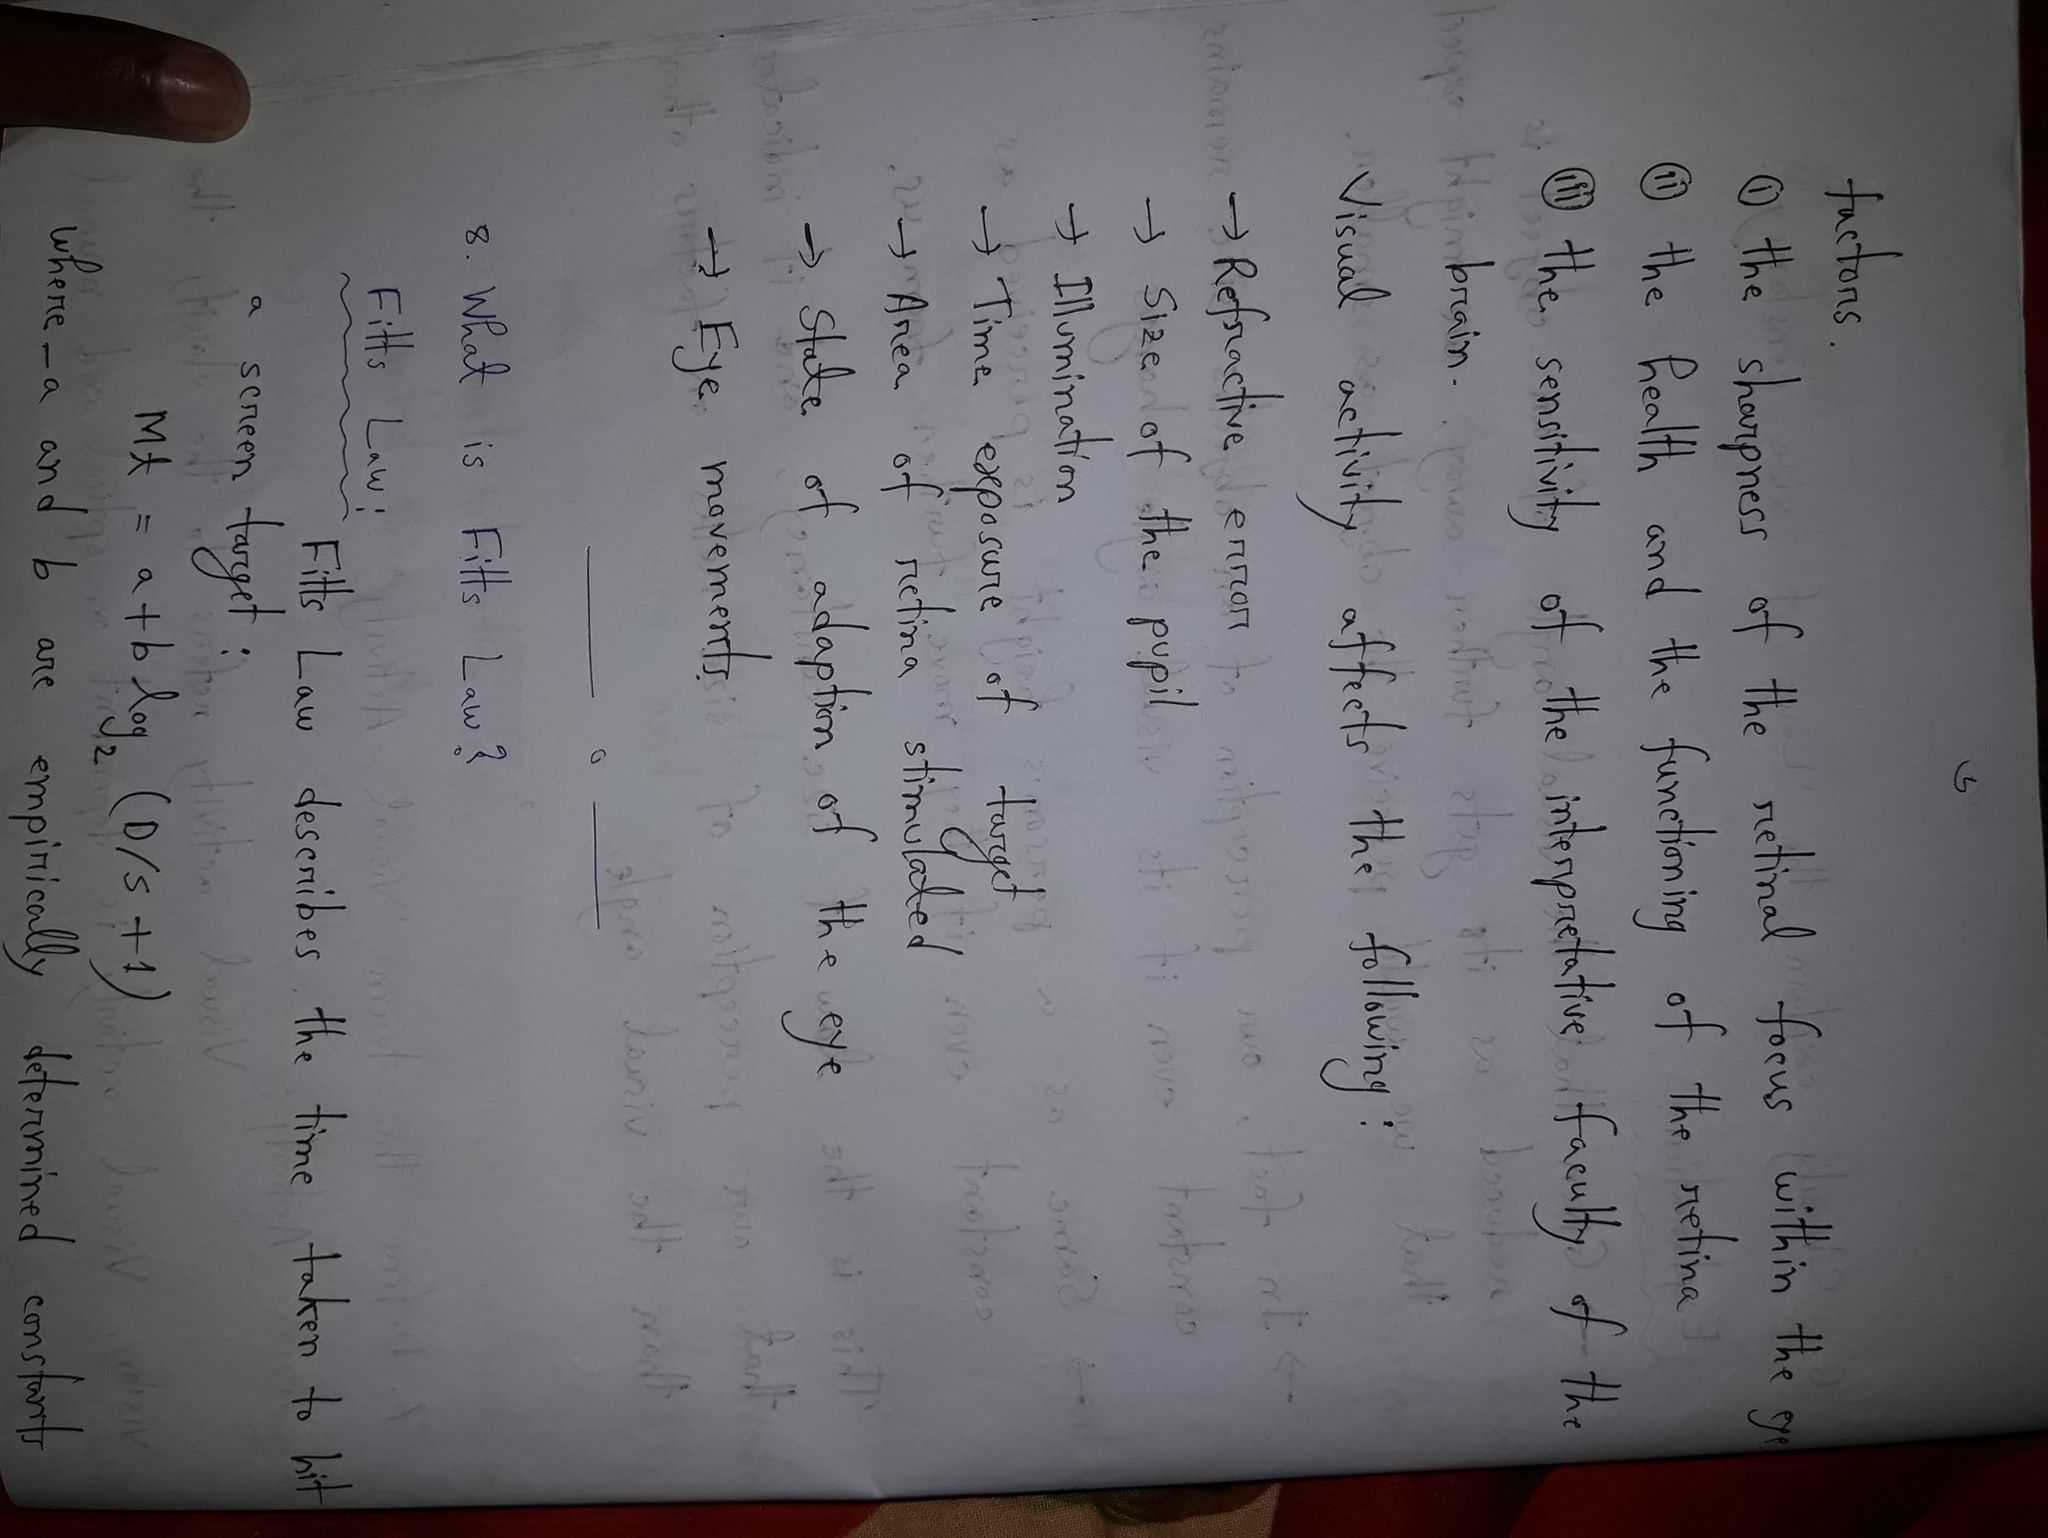 factors.
(i) the sharpness of the retinal focus within the eye
(ii) the health and the functioning of the retina
(iii) the sensitivity of the interpretative faculty of the
brain.
Visual activity affects the following:
→ Refractive error
→ Size of the pupil
→ Illumination
→ Time exposure of target
→ Area of retina stimulated
→ State of adaption of the eye
→ Eye movements
8. What is Fitts Law?
Fitts Law:
Fitts Law describes the time taken to hit
a screen target:
Mt = a + b log₂ (D/s + 1)
where - a and b are empirically determined constants